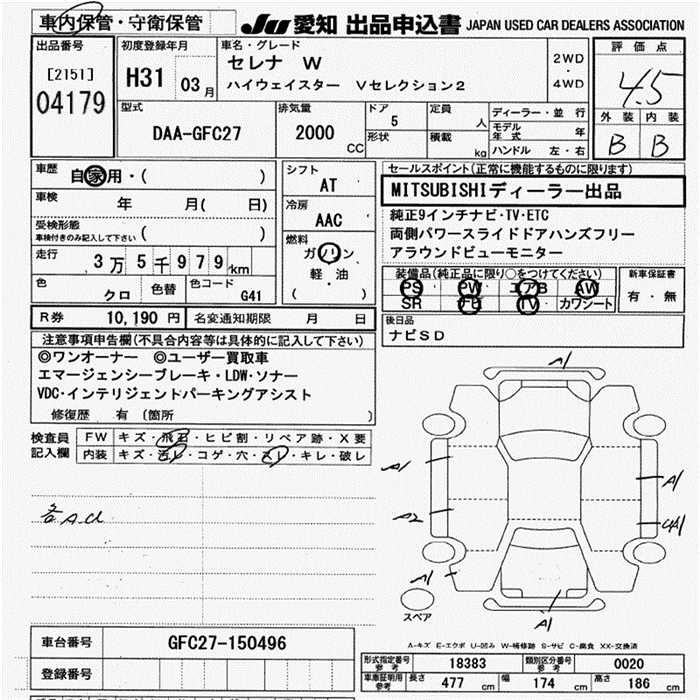 車内保管・守衛保管
JU 愛知 出品申込書 JAPAN USED CAR DEALERS ASSOCIATION
出品番号
[2151]
04179
初度登録年月
H31 03月
車名・グレード
セレナ W
ハイウェイスター Vセレクション2
2WD
・
4WD
評価点
4.5
外装 内装
B B
型式
DAA-GFC27
排気量
2000 CC
ドア
5
形状
定員
人
積載
kg
ディーラー・並行
モデル年式 年
ハンドル 左・右
車歴
自家用・( )
車検
年 月( 日)
受検形態
車検付きのみ記入して下さい ( )
走行
3万5千979km
色
クロ
色替
色コード
G41
シフト
AT
冷房
AAC
燃料
ガソリン
軽・油
( )
セールスポイント(正常に機能するものに限ります)
MITSUBISHIディーラー出品
純正9インチナビ・TV・ETC
両側パワースライドドアハンズフリー
アラウンドビューモニター
装備品(純正品に限り○をつけてください)
PS PW エアB AW
SR TV カワシート
新車保証書
有・無
後日品
ナビSD
R券 10,190円 名変通知期限 月 日
注意事項申告欄(不具合内容等は具体的に記入して下さい)
◎ワンオーナー ◎ユーザー買取車
エマージェンシーブレーキ・LDW・ソナー
VDC・インテリジェンドパーキングアシスト
修復歴 有 (箇所 )
検査員記入欄
FW キズ・飛石・ヒビ割・リペア跡・X要
内装 キズ・汚レ・コゲ・穴・スレ・キレ・破レ
各A.U
A1
A1
A1
A2
UA1
A1
A1
スペア
A-キズ E-エクボ U-凹み W-補修跡 S-サビ C-腐食 XX-交換済
車台番号 GFC27-150496
登録番号
形式指定番号参考 18383 類別区分番号参考 0020
車庫証明用参考 長さ 477cm 幅 174cm 高さ 186cm